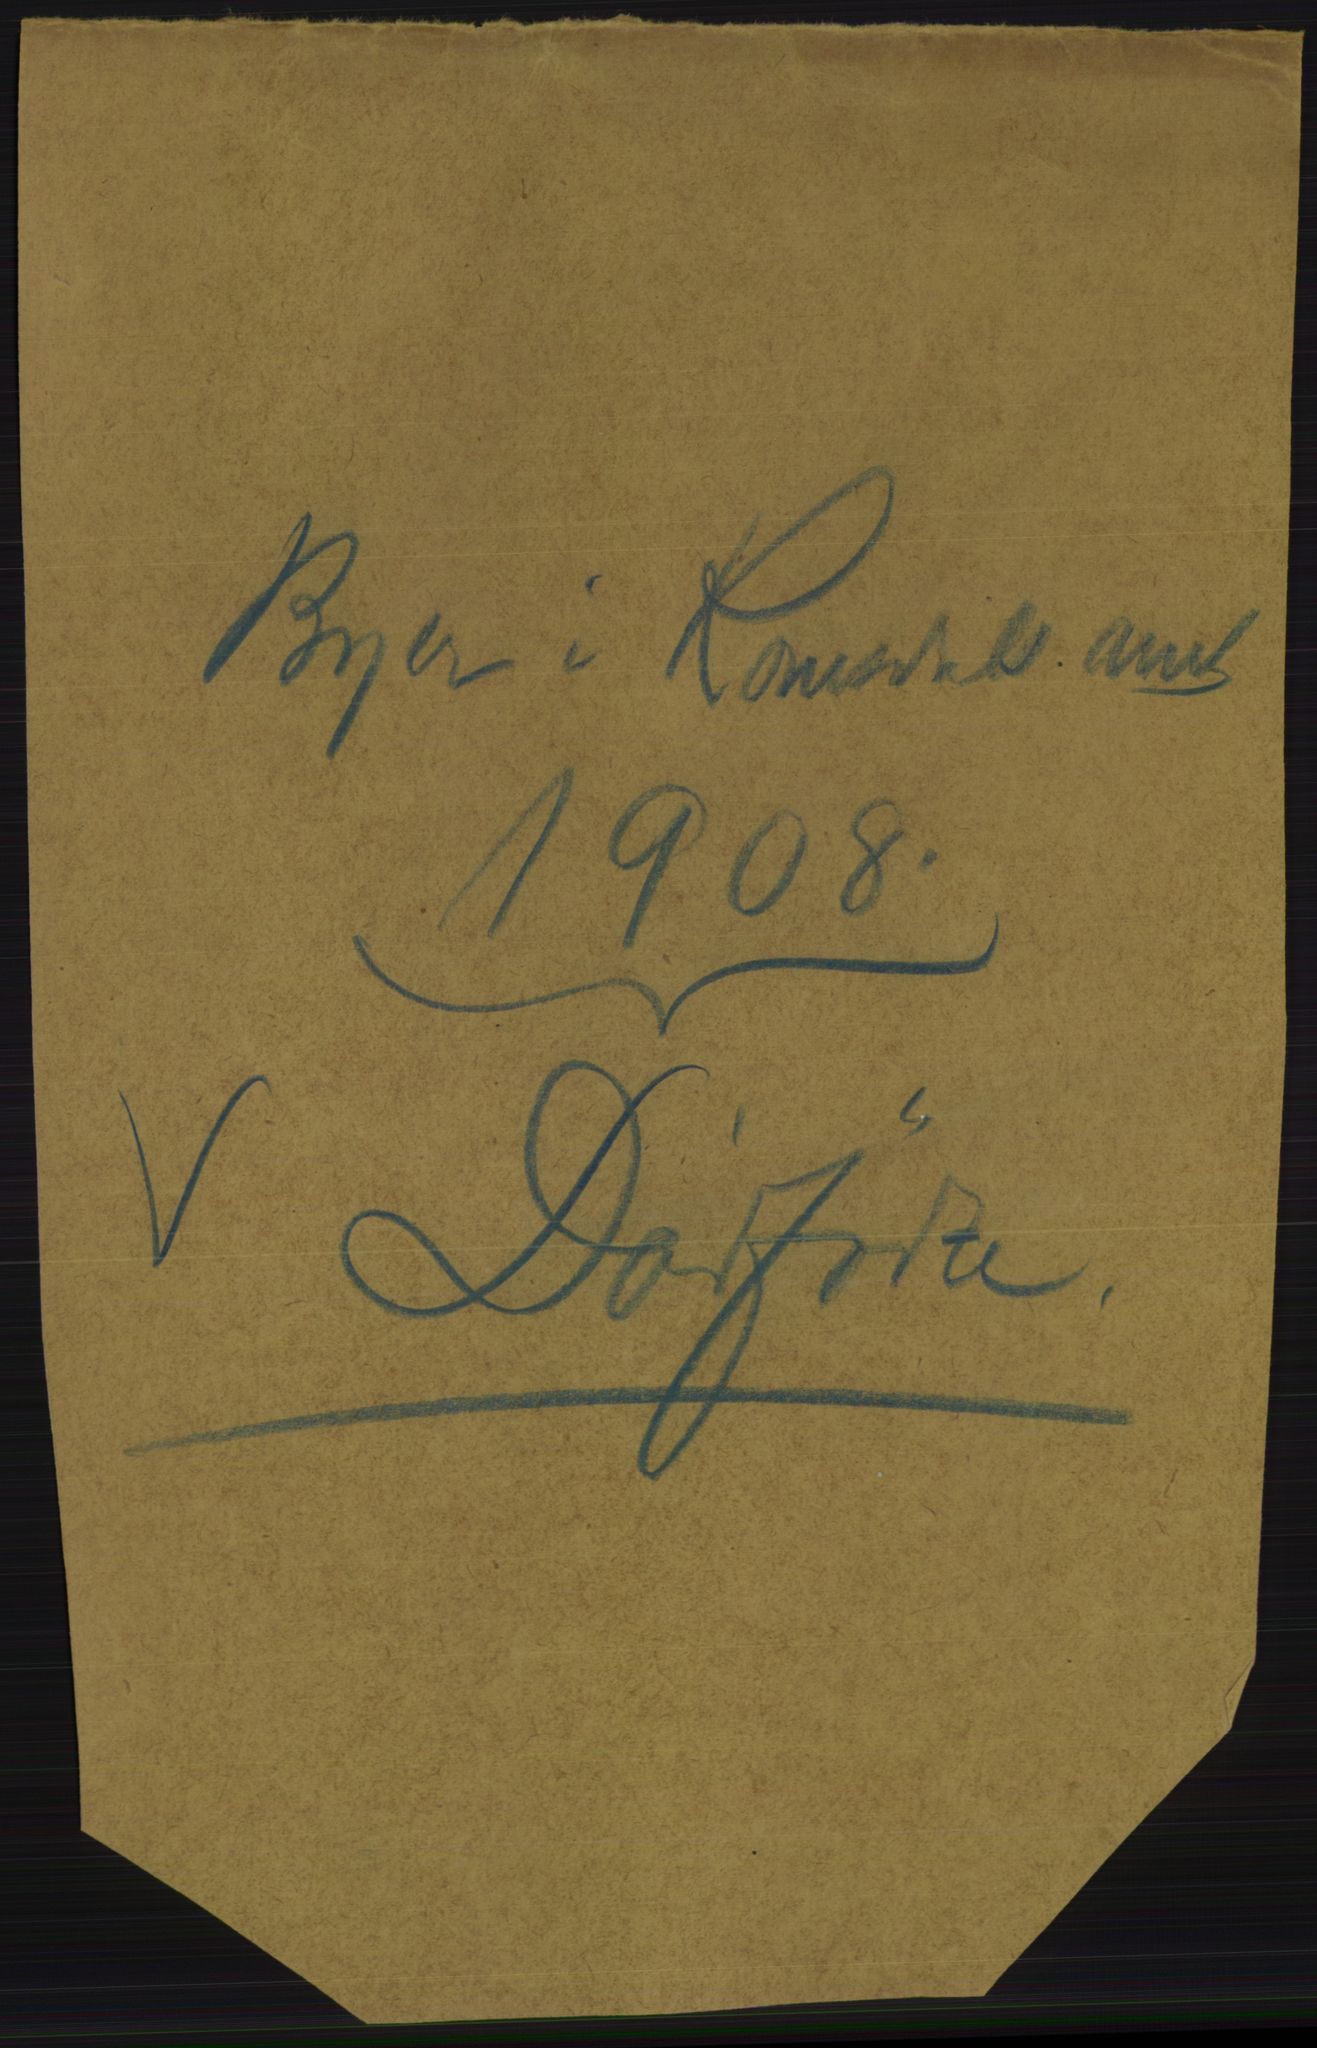 Byer i Romsdals amt
1908.
V Dødfødte.